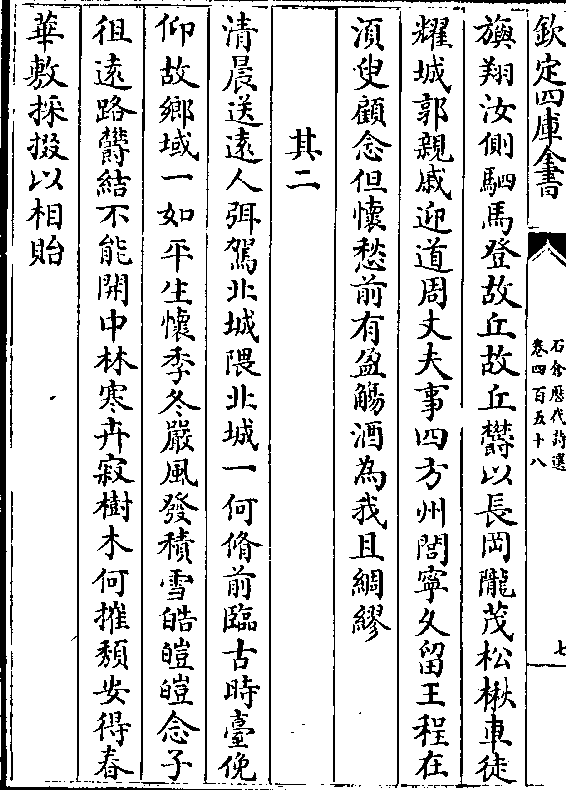 欽定四庫全書
石倉歷代詩選
卷四百五十八
七
旟翔汝側駟馬登故丘故丘欝以長岡隴茂松楸車徒
耀城郭親戚迎道周丈夫事四方州閭寧久留王程在
湏臾顧念但懷愁前有盈觴酒為我且綢繆
其二
清晨送遠人弭駕北城隈北城一何脩前臨古時臺俛
仰故鄉域一如平生懷季冬嚴風發積雪皓皚皚念子
徂遠路欝結不能開中林寒卉寂樹木何摧頽安得春
華敷採掇以相貽